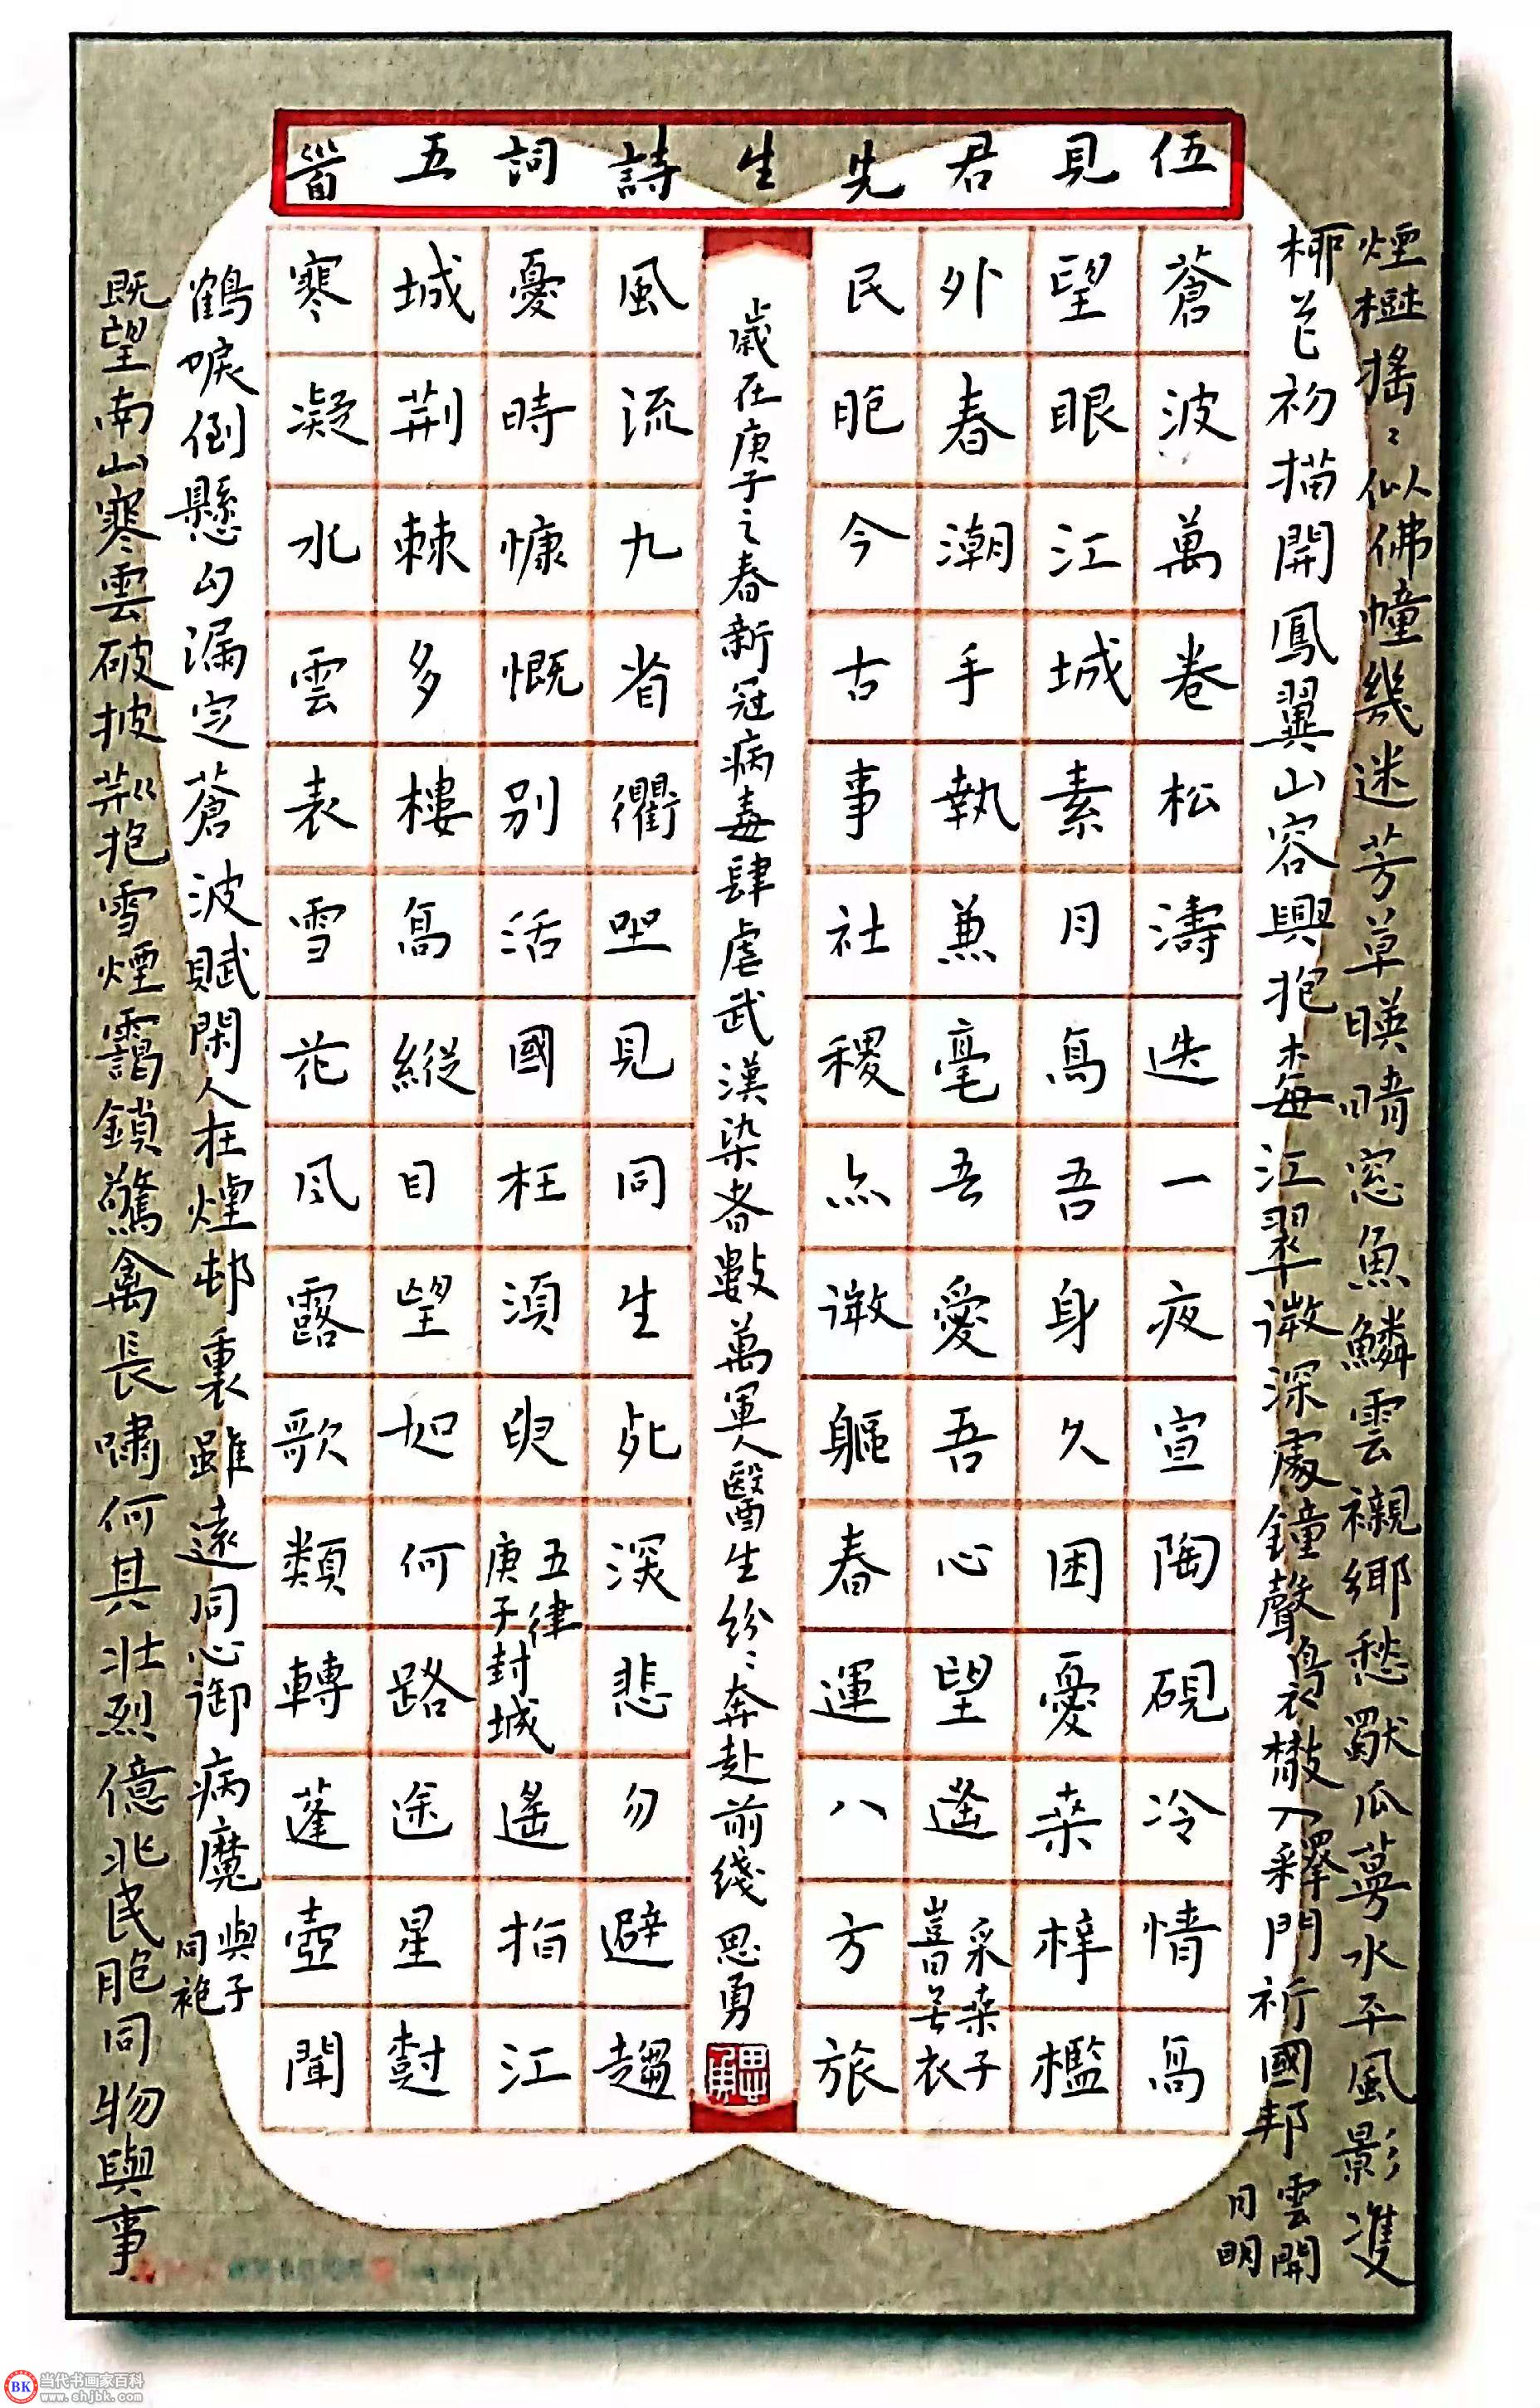 伍見君先生詩詞五首
煙樹搖〻似佛幢幾迷芳草暎晴窓魚鱗雲襯鄉愁獸瓜蔓水平風影雙
柳芒初描開鳳翼山容興抱梅江翠微深處鐘聲鳥衣散入釋門祈國邦
雲開
日明
蒼波萬卷松濤迭一夜宣陶硯冷情高
望眼江城素月鳥吾身久困憂桒梓檻
外春潮手執兼毫吾愛吾心望遙
采桒子
喜衣
民胞今古事社稷亦微軀春運八方旅
歲在庚子之春新冠病毒肆虐武漢染者數萬軍人醫生紛〻奔赴前綫思勇
風流九省衢坐見同生死深悲勿避趨
憂時慷慨別活國枉須臾
五律
庚子封城
遙指江
城荊棘多樓高縱目望如何路途星對
寒凝水雲表雪花风露歌類轉蓬壺聞
鶴唳倒懸勾漏定蒼波賦閑人在煙邨裏雖遠同心御病魔
與子
同袍
既望南山寒雲破披荊抱雪煙靄鎖驚禽長嘯何其壯烈億兆民胞同物與事
BK 当代书画家百科
www.shjbk.com